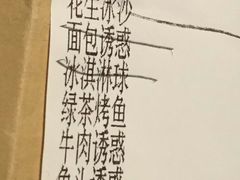 花生冰沙
面包诱惑
冰淇淋球
绿茶烤鱼
牛肉诱惑
鱼头诱惑